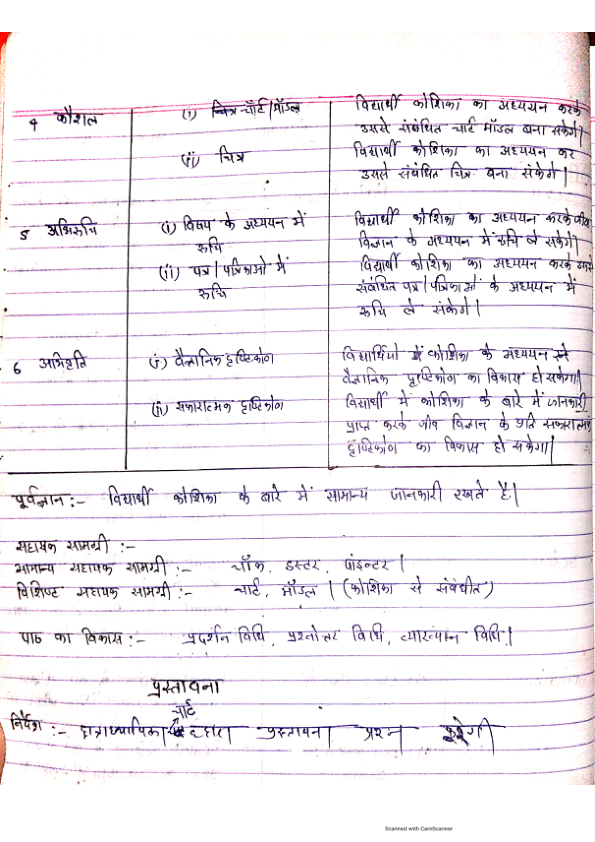 4 कौशल (i) चित्र चार्ट/मॉडल विद्यार्थी कोशिका का अध्ययन करके
उससे संबंधित चार्ट मॉडल बना सकेंगे।
(ii) चित्र विद्यार्थी कोशिका का अध्ययन कर
उससे संबंधित चित्र बना सकेंगे।
5 अभिरूचि (i) विषय के अध्ययन में विद्यार्थी कोशिका का अध्ययन करके जीव
रूचि विज्ञान के अध्ययन में रूचि ले सकेंगे।
(ii) पत्र/पत्रिकाओं में विद्यार्थी कोशिका का अध्ययन करके उससे
रूचि संबंधित पत्र/पत्रिकाओं के अध्ययन में
रूचि ले सकेंगे।
6 अभिवृति (i) वैज्ञानिक दृष्टिकोण विद्यार्थियों में कोशिका के अध्ययन से
वैज्ञानिक दृष्टिकोण का विकास हो सकेगा।
(ii) सकारात्मक दृष्टिकोण विद्यार्थी में कोशिका के बारे में जानकारी
प्राप्त करके जीव विज्ञान के प्रति सकारात्मक
दृष्टिकोण का विकास हो सकेगा।
पूर्वज्ञान:- विद्यार्थी कोशिका के बारे में सामान्य जानकारी रखते है।
सहायक सामग्री :-
सामान्य सहायक सामग्री :- चॉक, डस्टर, पांइन्टर।
विशिष्ट सहायक सामग्री :- चार्ट, मॉडल। (कोशिका से संबंधीत)
पाठ का विकास:- प्रदर्शन विधि, प्रश्नोत्तर विधि, व्याख्यान विधि।
प्रस्तावना
चार्ट
निर्देश :- छात्राध्यापिका द्वारा प्रस्तावना प्रश्न करेगी
Scanned with CamScanner